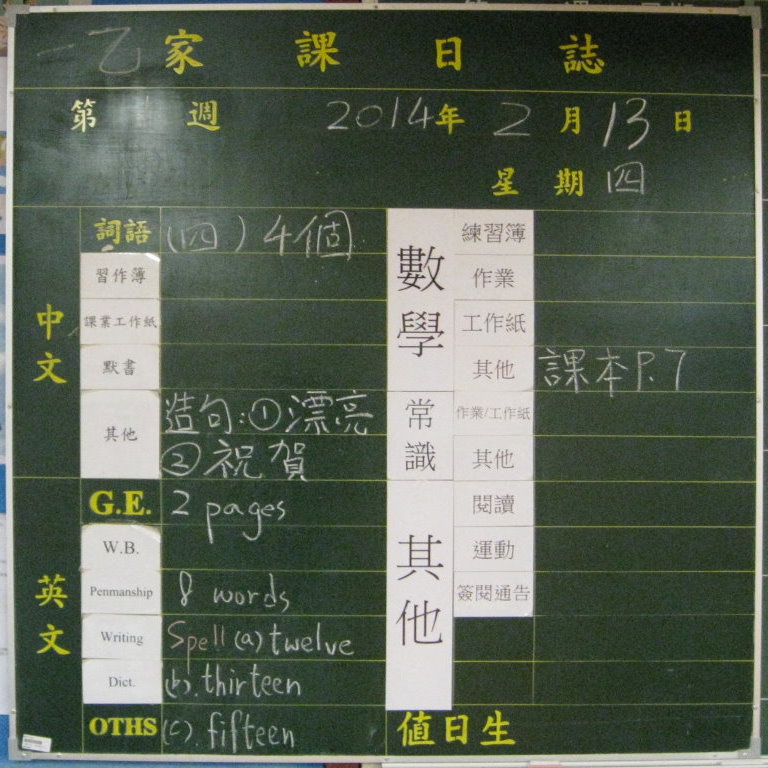 一乙 家課日誌
第 週 2014年 2月 13日
星期四
中文
詞語 (四) 4個
習作簿
課業工作紙
默書
其他 造句:①漂亮
②祝賀
英文
G.E. 2 pages
W.B.
Penmanship 8 words
Writing Spell (a) twelve
Dict. (b). thirteen
OTHS (c). fifteen
數學
練習簿
作業
工作紙
其他 課本P.7
常識
作業/工作紙
其他
其他
閱讀
運動
簽閱通告
值日生